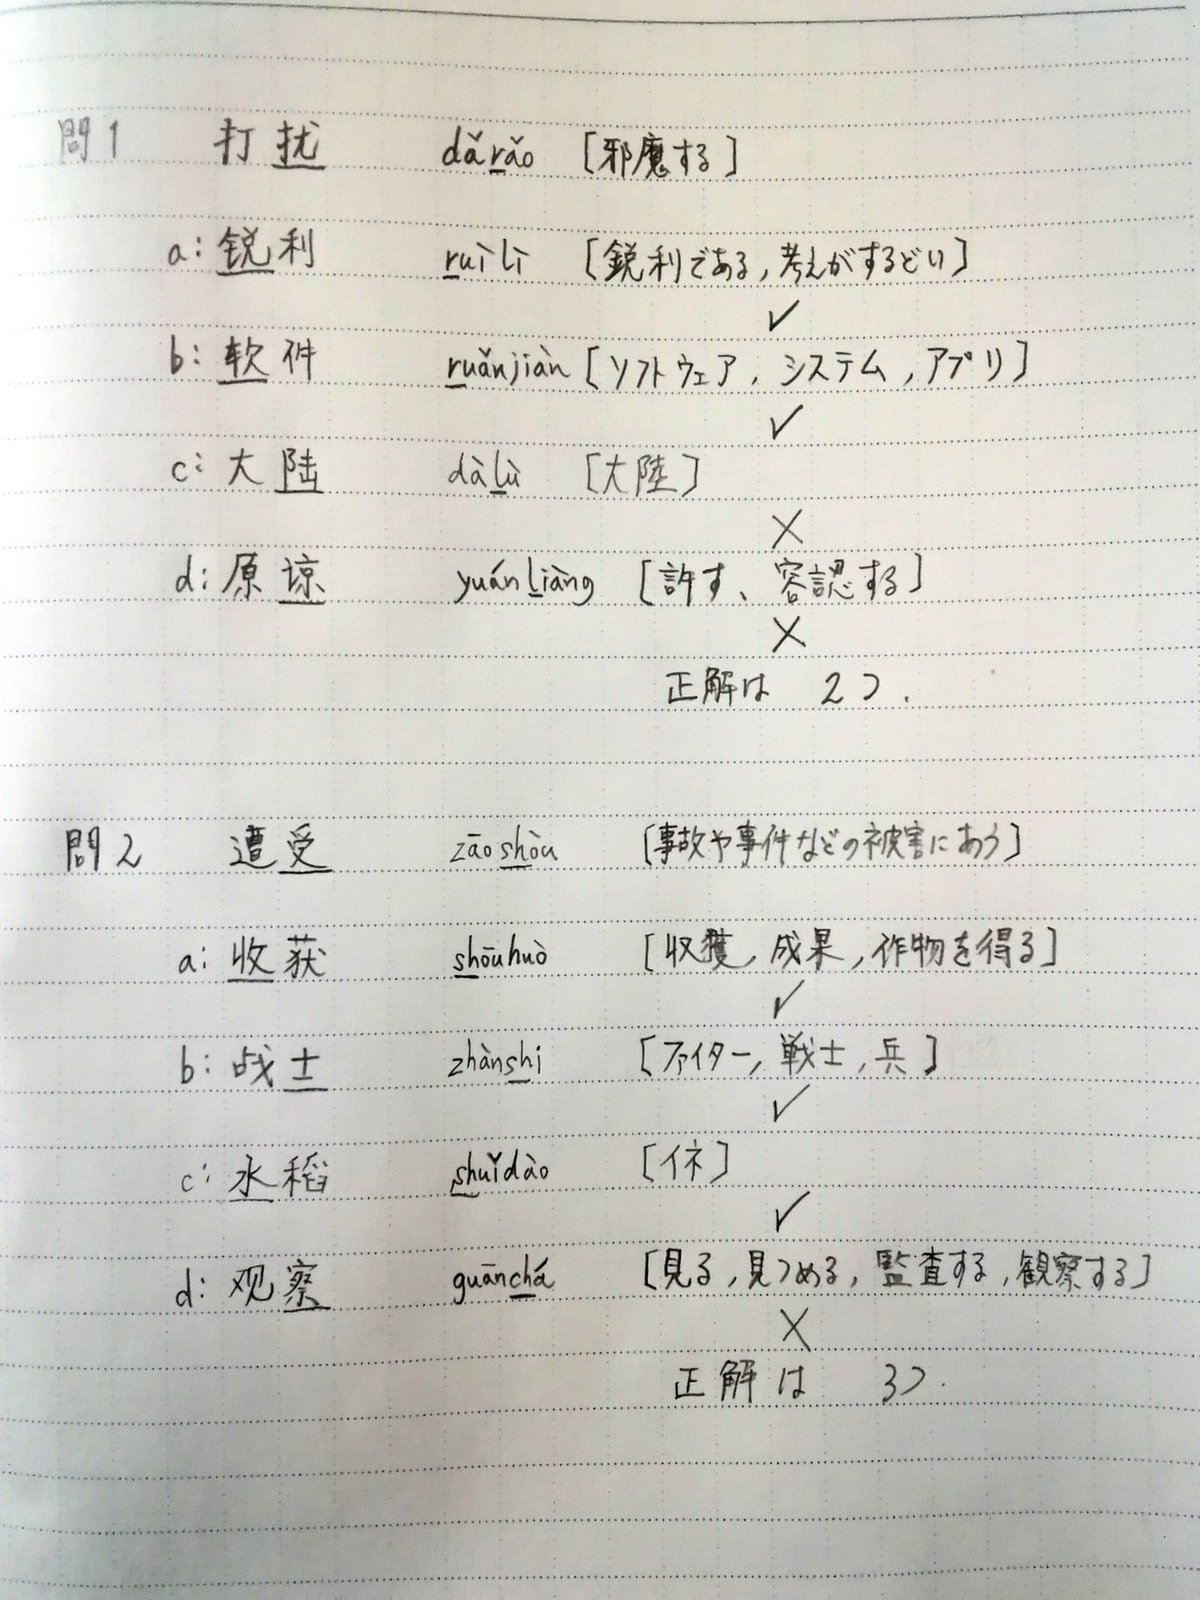 問1 打扰 dǎrǎo [邪魔する]
a: 锐利 ruìlì [鋭利である, 考えがするどい]
✓
b: 软件 ruǎnjiàn [ソフトウェア, システム, アプリ]
✓
c: 大陆 dàlù [大陸]
×
d: 原谅 yuánliàng [許す、容認する]
×
正解は 2つ.
問2 遭受 zāoshòu [事故や事件などの被害にあう]
a: 收获 shōuhuò [収獲, 成果, 作物を得る]
✓
b: 战士 zhànshi [ファイター, 戦士, 兵]
✓
c: 水稻 shuǐdào [イネ]
✓
d: 观察 guānchá [見る, 見つめる, 監査する, 観察する]
×
正解は 3つ.